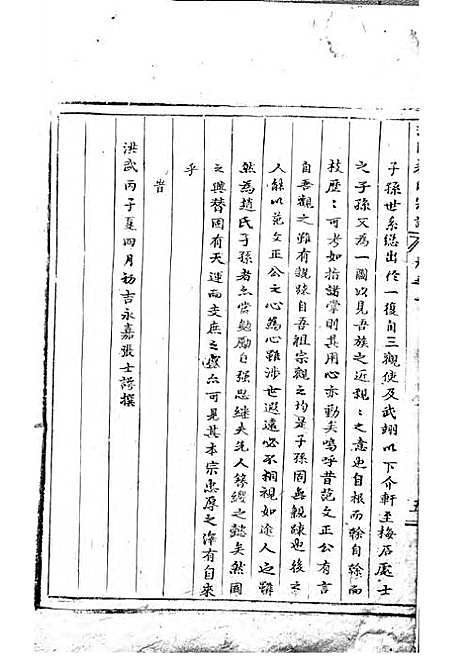 子孫世系總出於一復自三觀使及武翊以下介軒至梅居處士
之子孫又為一圖以見吾族之近親：之意也自根而榦自榦而
枝歷：可考如指諸掌則其用心亦勤矣嗚呼昔范文正公有言
自吾觀之雖有親踈自吾祖宗觀之均是子孫固無親踈也後之
人能以范文正公之心為心雖涉世遐遠必不相視如途人之雖
然為趙氏子孫者亦當勉勵自强思継夫先人簪纓之懿矣然国
之興替固有天運而支庶之盛亦可見其本宗忠厚之澤有自來
乎
昔
洪武丙子夏四月初吉永嘉張士謗撰